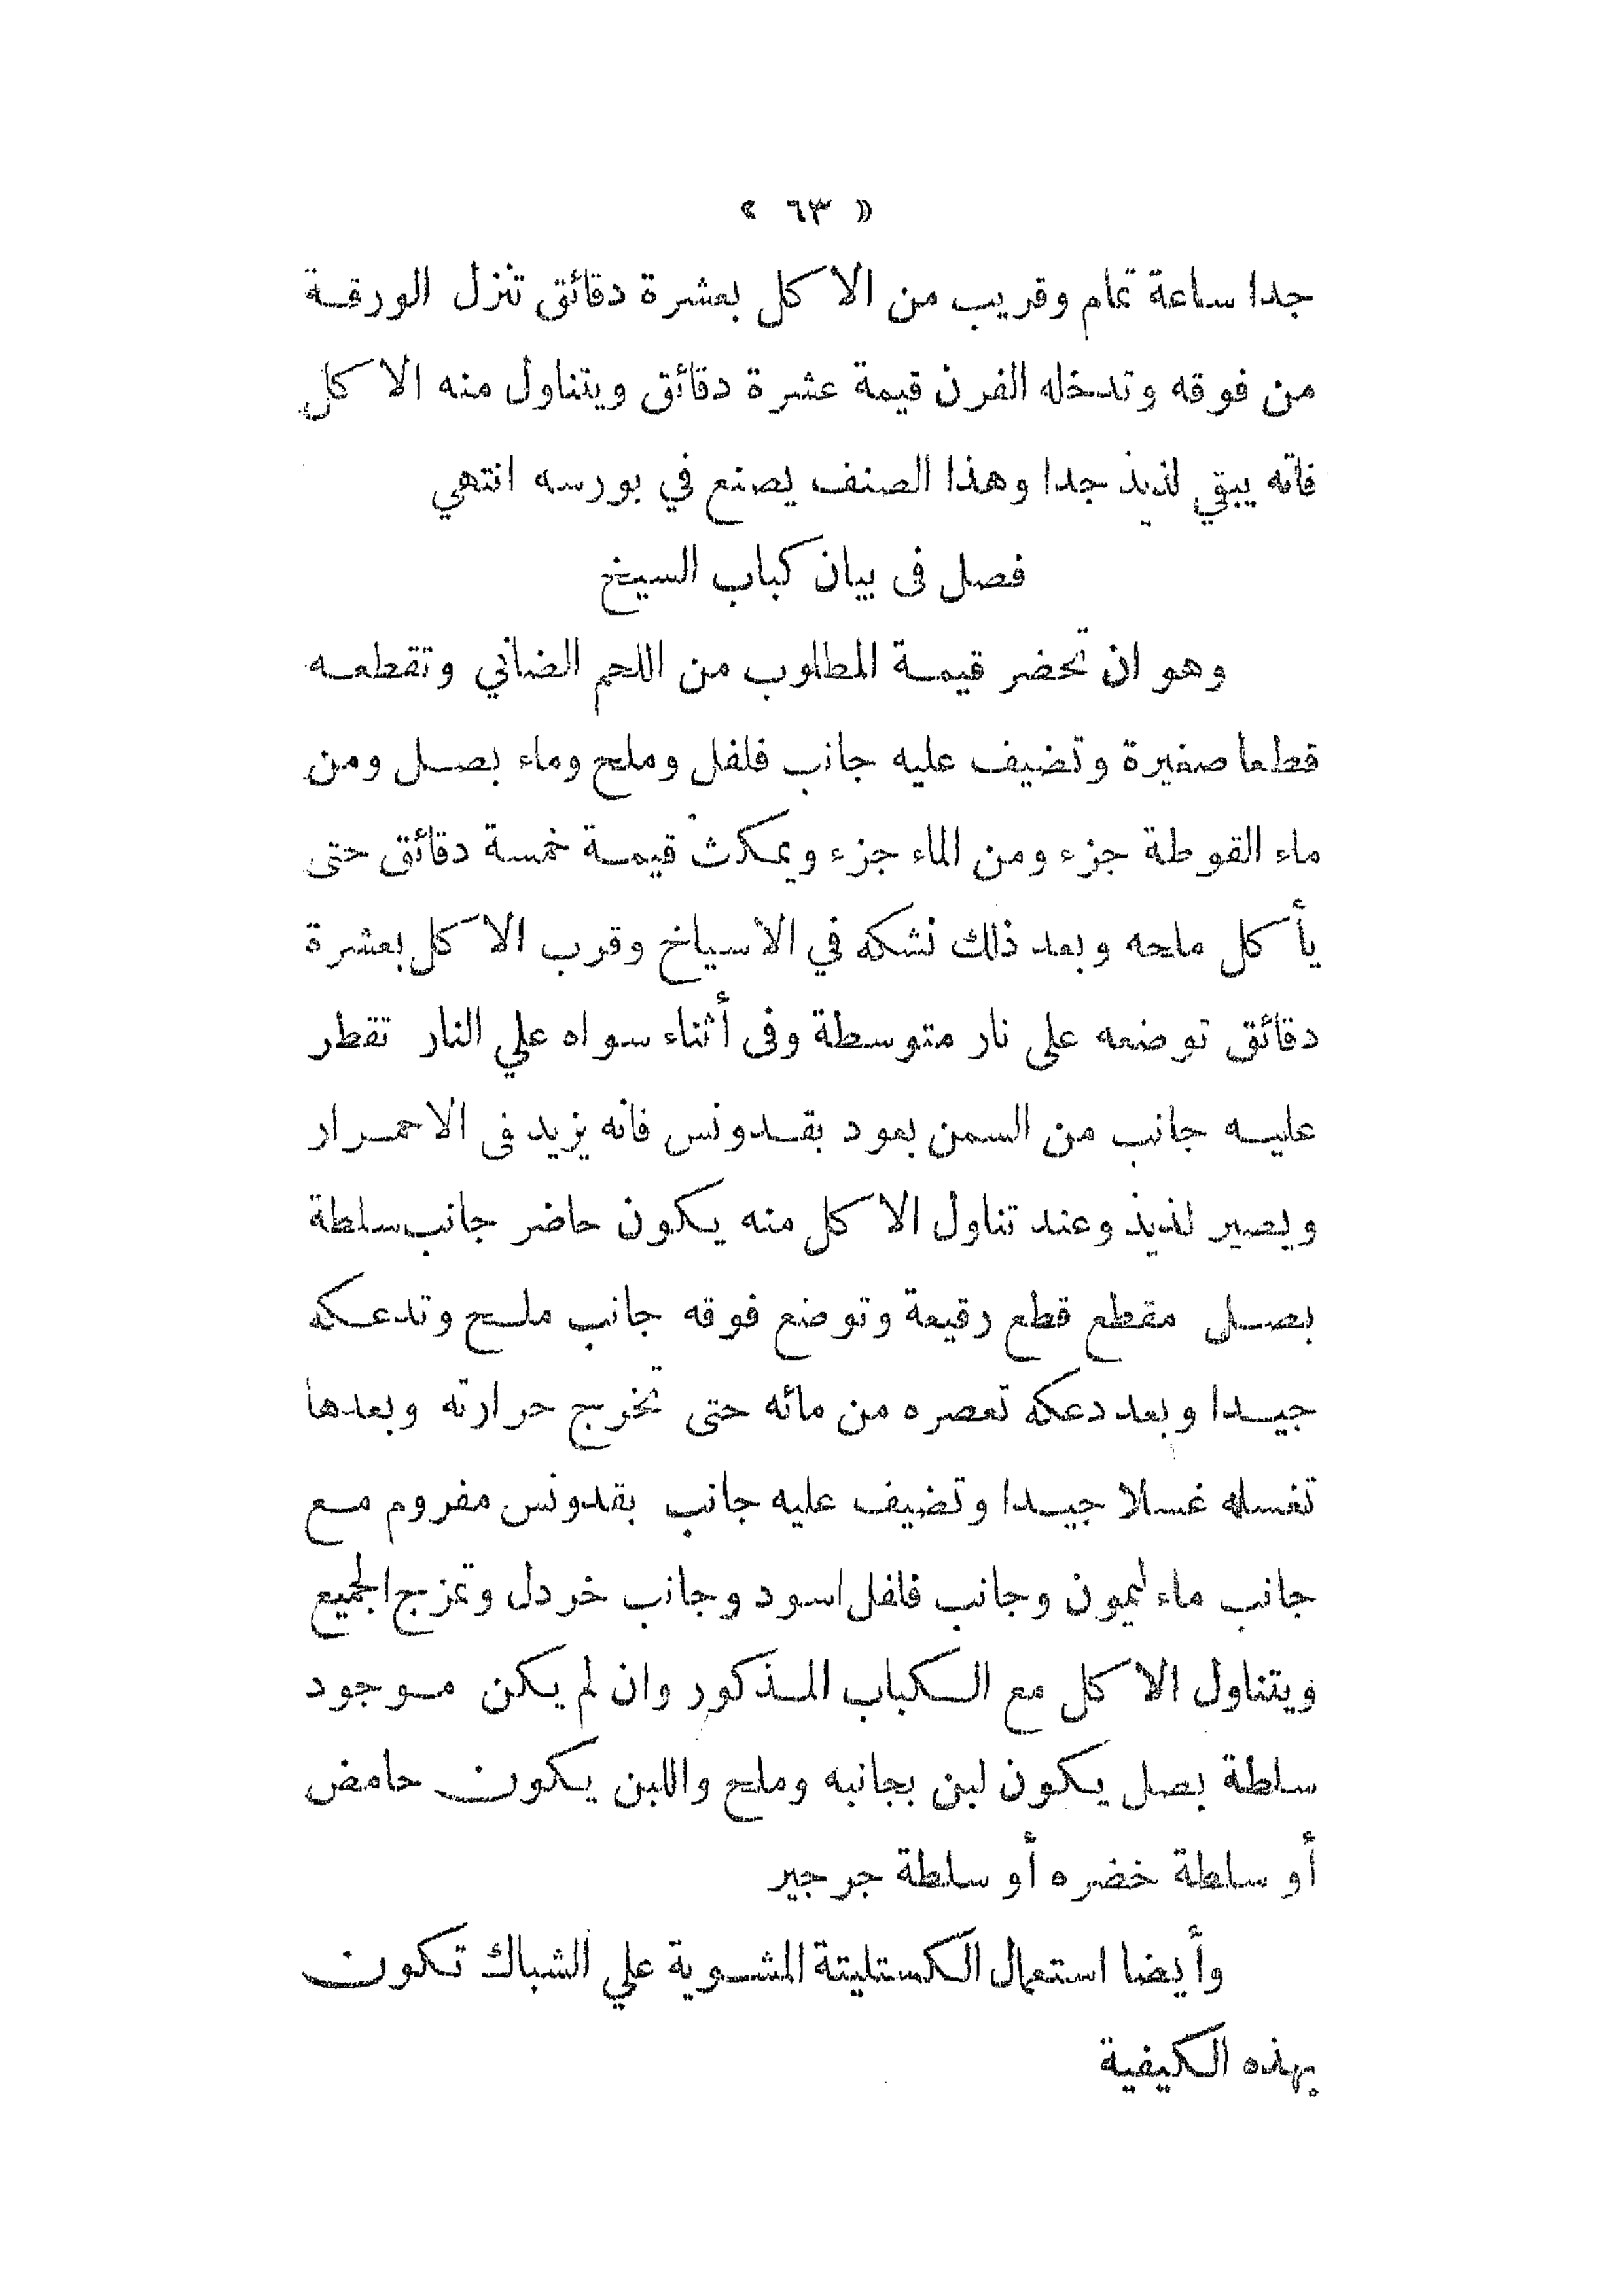 « ٦٣ »
جدا ساعة تمام وقريب من الاكل بعشرة دقائق تنزل الورقة
من فوقه وتدخله الفرن قيمة عشرة دقائق ويتناول منه الاكل
فانه يبقي لذيذ جدا وهذا الصنف يصنع في بورسه انتهي
فصل فى بيان كباب السيخ
وهو ان تحضر قيمة المطلوب من اللحم الضاني وتقطعه
قطعا صغيرة وتضيف عليه جانب فلفل وملح وماء بصل ومن
ماء القوطة جزء ومن الماء جزء ويمكث قيمة خمسة دقائق حتى
يأكل ملحه وبعد ذلك نشكه في الاسياخ وقرب الاكل بعشرة
دقائق توضعه على نار متوسطة وفى أثناء سواه علي النار تقطر
عليه جانب من السمن بعود بقدونس فانه يزيد فى الاحمرار
ويصير لذيذ وعند تناول الاكل منه يكون حاضر جانب سلطة
بصل مقطع قطع رقيعة وتوضع فوقه جانب ملح وتدعكه
جيدا وبعد دعكه تعصره من مائه حتى تخرج حرارته وبعدها
تغسله غسلا جيدا وتضيف عليه جانب بقدونس مفروم مع
جانب ماء ليمون وجانب فلفل اسود وجانب خردل وتمزج الجميع
ويتناول الاكل مع الكباب المذكور وان لم يكن موجود
سلطة بصل يكون لبن بجانبه وملح واللبن يكون حامض
أو سلطة خضره أو سلطة جرجير
وأيضا استعمال الكستليتة المشوية علي الشباك تكون
بهذه الكيفية